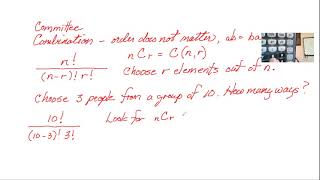 Committee
Combination - order does not matter, ab = ba
n! / (n-r)! r!
nCr = C(n,r)
Choose r elements out of n.
Choose 3 people from a group of 10. How many ways?
10! / (10-3)! 3!
Look for nCr